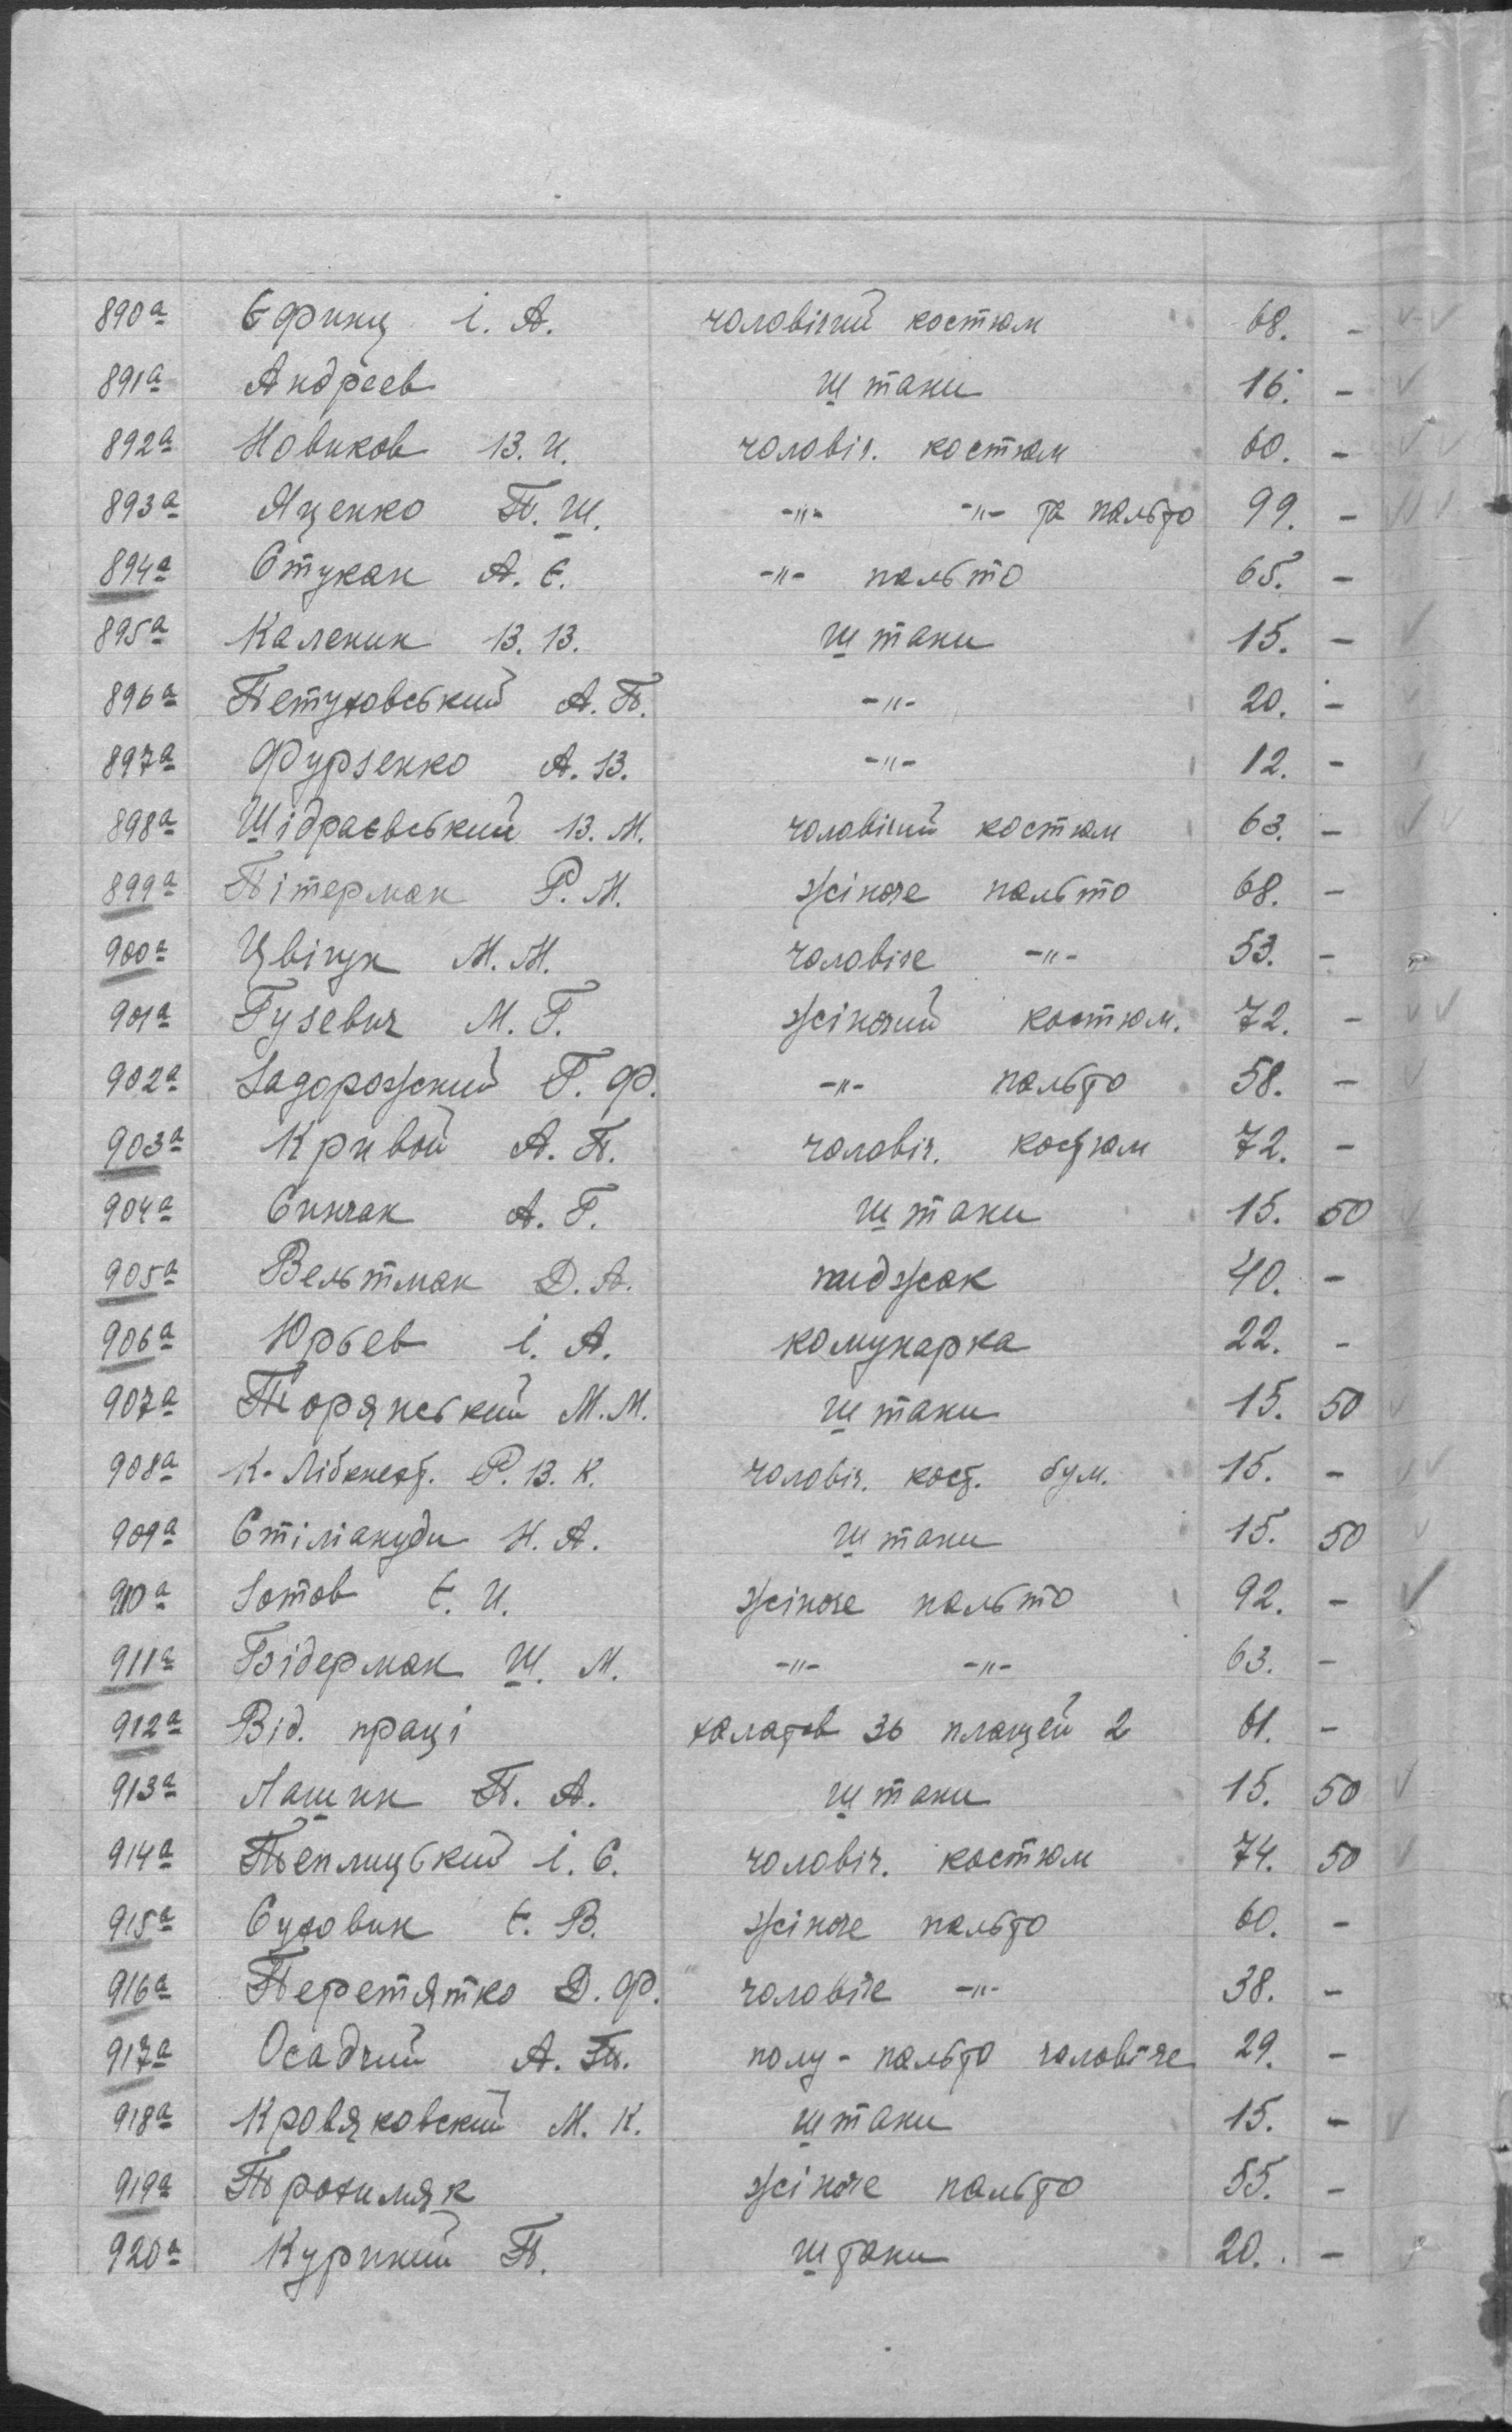 890а Єфинц І. А. чоловічий костюм 68. -
891а Андреев штани 16. -
892а Новиков В. И. чоловіч. костюм 60. -
893а Яценко П. Ш. -"- -"- та пальто 99. -
894а Стукан А. Є. -"- пальто 65. -
895а Каленик В. В. штани 15. -
896а Петуховський А. П. -"- 20. -
897а Фурзенко А. В. -"- 12. -
898а Шідраєвський В. М. чоловічий костюм 63. -
899а Пітерман Р. М. жіноче пальто 68. -
900а Цвігун М. М. чоловіче -"- 53. -
901а Гузевич М. Г. жіночий костюм. 72. -
902а Задорожний Г. Ф. -"- пальто 58. -
903а Кривой А. П. чоловіч. костюм 72. -
904а Синчак А. Г. штани 15. 50
905а Вельтман Д. А. пиджак 40. -
906а Юрьев І. А. комунарка 22. -
907а Торянський М. М. штани 15. 50
908а К-Лібкнехт. Р. В. К. чоловіч. кост. бум. 15. -
909а Стіліануди Н. А. штани 15. 50
910а Зотов Є. И. жіноче пальто 92. -
911а Бідерман Ш. М. -"- -"- 63. -
912а Від. праці халатов 36 плащей 2 61. -
913а Лашин П. А. штани 15. 50
914а Теплицький І. С. чоловіч. костюм 74. 50
915а Суховик Є. В. жіноче пальто 60. -
916а Перетятко Д. Ф. чоловіче -"- 38. -
917а Осадчий А. П. полу-пальто чоловіче 29. -
918а Кровяковский М. К. штани 15. -
919а Прохимяк жіноче пальто 55. -
920а Куриний П. штани 20. -